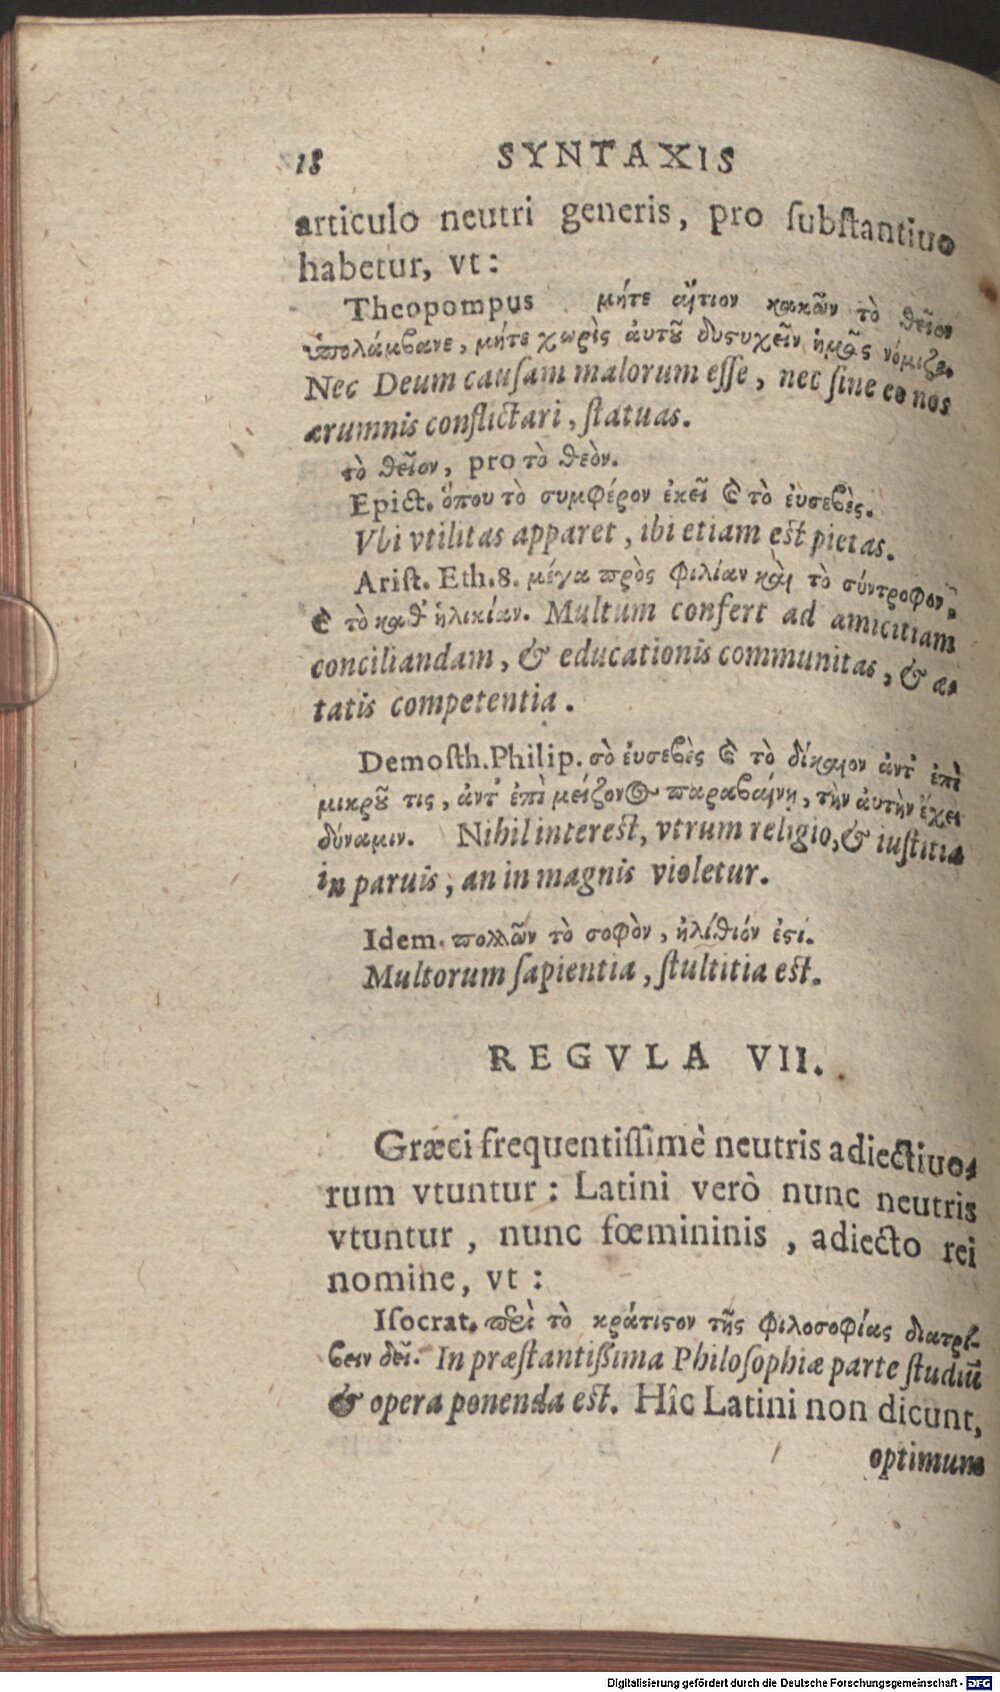 18 SYNTAXIS
articulo neutri generis, pro ſubſtantiuo
habetur, vt:
Theopompus μήτε αἴτιον κακῶν τὸ θεῖον
ὑπολάμβανε, μήτε χωρὶς ἀυτοῦ δυςυχεῖν ἡμᾶς νόμιζε.
Nec Deum cauſam malorum eſſe, nec ſine eo nos
ærumnis conflictari, ſtatuas.
τὸ θεῖον, pro τὸ θεὸν.
Epict. ὅπου τὸ συμφέρον ἐκεῖ καὶ τὸ ἐυσεβὲς.
Vbi vtilitas apparet, ibi etiam est pietas.
Ariſt. Eth. 8. μέγα πρὸς φιλίαν καὶ τὸ σύντροφον,
καὶ τὸ καθ' ἡλικίαν. Multum confert ad amicitiam
conciliandam, & educationis communitas, & æ-
tatis competentia.
Demoſth. Philip. σὸ ἐυσεβὲς καὶ τὸ δίκαιον ἀντ' ἐπὶ
μικροῦ τις, ἀντ' ἐπὶ μείζονος παραβαίνῃ, τὴν ἀυτὴν ἔχει
δύναμιν. Nihil interest, vtrum religio, & iuſtitia
in paruis, an in magnis violetur.
Idem. πολλῶν τὸ σοφὸν, ἠλίθιόν ἐςι.
Multorum ſapientia, ſtultitia est.
REGVLA VII.
Græci frequentiſſimè neutris adiectiuo-
rum vtuntur: Latini verò nunc neutris
vtuntur, nunc fœmininis, adiecto rei
nomine, vt:
Iſocrat. περὶ τὸ κράτιςον τῆς φιλοσοφίας διατρί-
βειν δεῖ. In præſtantiſſima Philoſophiæ parte ſtudiū
& opera ponenda est. Hîc Latini non dicunt,
optimum
Digitalisierung gefördert durch die Deutsche Forschungsgemeinschaft - DFG